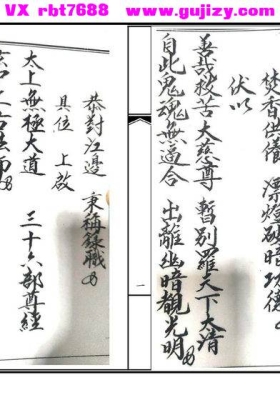 VX rbt7688 www.gujizy.com
焚香供養
伏以
善哉救苦大慈尊 暫別羅天下太清
自此鬼魂無逼合 出離幽暗覩光明
一
恭對江邊 秉稱錄職
具位 上啟
太上無極大道 三十六部尊經